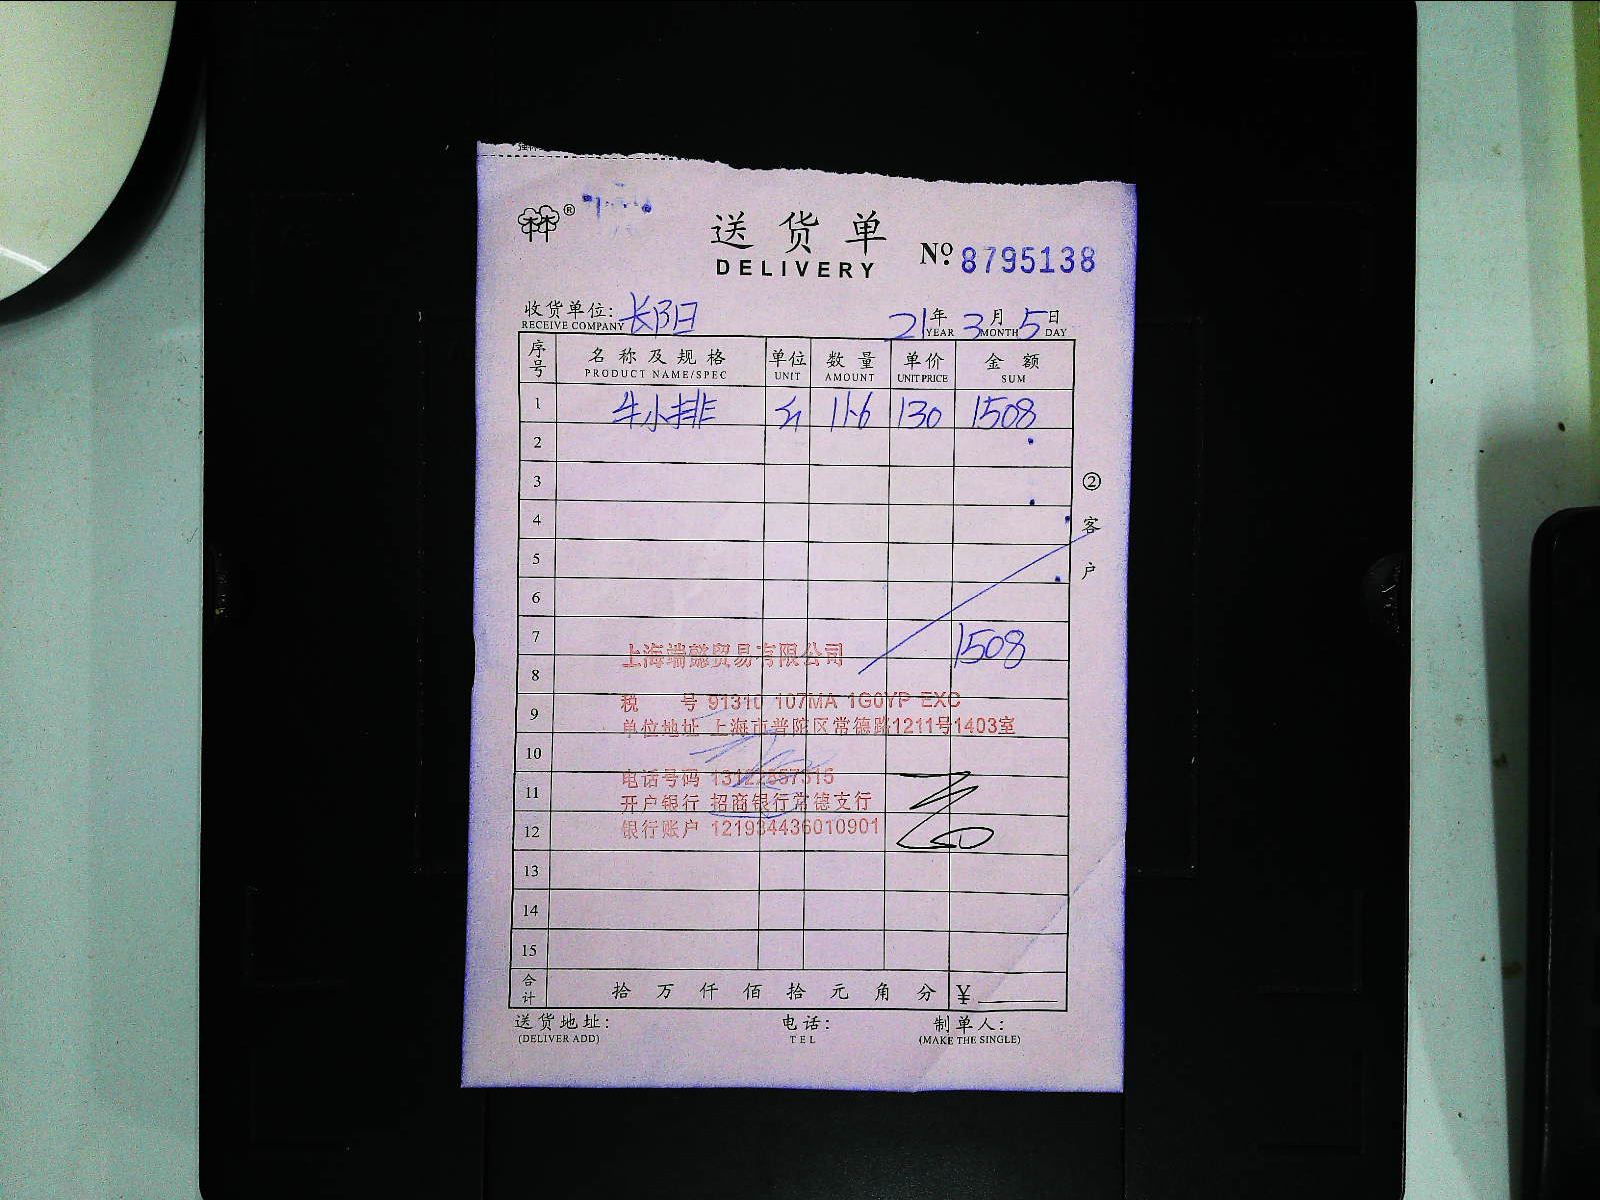 送货单
DELIVERY
№ 8795138
收货单位: 长阳
RECEIVE COMPANY
21年 3月 5日
YEAR MONTH DAY
序号 名称及规格 单位 数量 单价 金额
PRODUCT NAME/SPEC UNIT AMOUNT UNIT PRICE SUM
1 牛小排 11.6 130 1508
2
3
4
5
6
7 1508
8
9
10
11
12
13
14
15
②客户
上海端懿贸易有限公司
税 号 91310 107MA 1G0YP EXC
单位地址 上海市普陀区常德路1211号1403室
电话号码
开户银行 招商银行常德支行
银行账户 121934436010901
合计 拾 万 仟 佰 拾 元 角 分 ¥
送货地址: 电话: 制单人:
(DELIVER ADD) TEL (MAKE THE SINGLE)